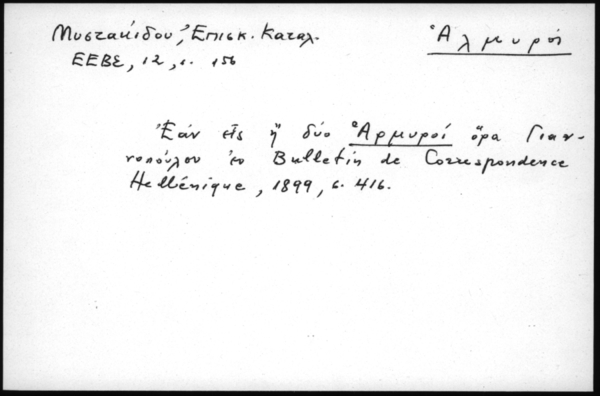 Μυστακίδου, Ἐπισκ. Καταλ.
Ἁλμυροί
ΕΕΒΣ, 12, σ. 156
Ἐάν εἷς ἤ δύο Ἁρμυροί ὅρα Γιαν-
νοπούλου ἐν Bulletin de Correspondence
Hellénique, 1899, σ. 416.